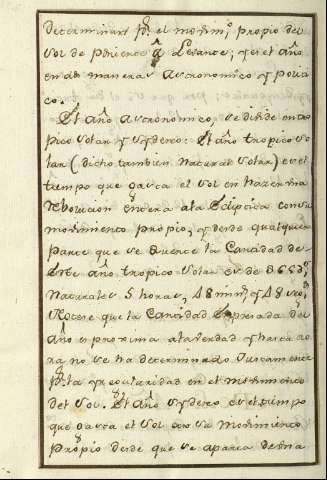 determinant pr. el mobim.to propio del
sol de poniente â Levante; y es el año
en dos maneras astronomico y politi
co.
El año astronomico, se divide en tro
pico solar y sydereo: El año tropico so
lar (dicho tambien natural solar) es el
tiempo que gasta el sol en hazer una
rebolucion entera ala Ecliptica con su
movimiento propio, y desde qualquiera
parte que se quente la Cantidad de
Este año tropico solar es de 365 ds.
naturales 5 horas, 48 min. y 48 seg.
que la Cantidad Espresada del
año es proxima ala verdad y hasta ao
ra no se ha determinado Justamente
pr. la yregularidad en el movimiento
del sol. El año sydereo es el tiempo
que gasta el sol con su movimiento
propio desde que se aparta de una